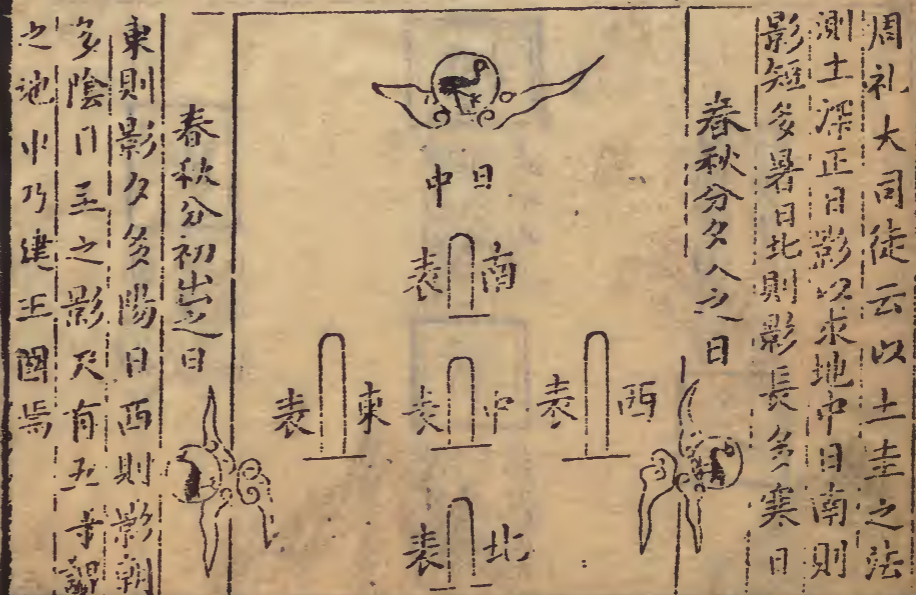 周礼大司徒云以土圭之法
測土深正日影以求地中日南則
影短多暑日北則影長多寒日
春秋分夕入之日
日中
南表
西表
中表
東表
北表
春秋分初出之日
東則影夕多陽日西則影朝
多陰日至之影尺有五寸謂
之地中乃建王國焉